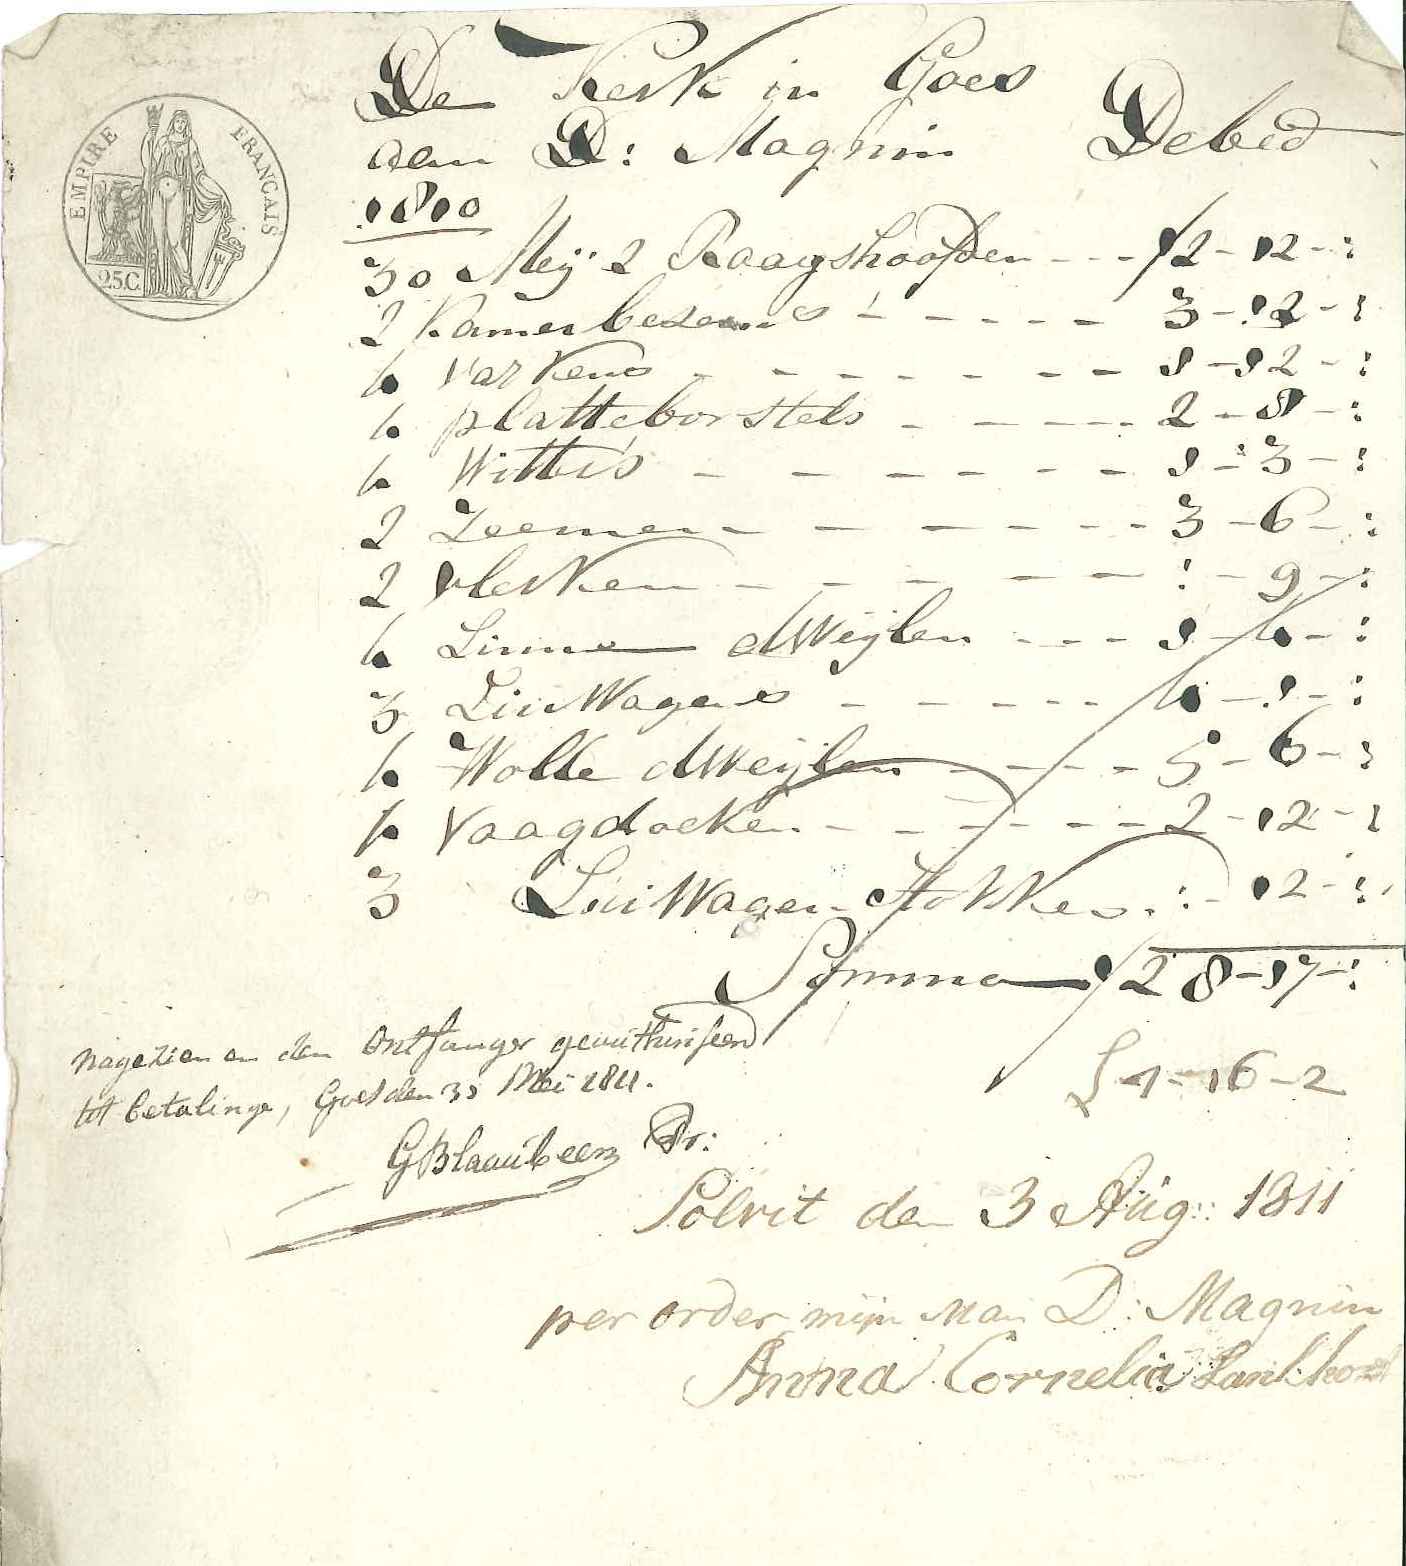 EMPIRE FRANÇAIS
25C.
De Kerk in Goes
aan D: Magnin Debed
1810
30 Meij 2 Raagshoofden - - - ƒ2 - 12 - :
2 Kamerbesems - - - - - 3 - 12 - :
4 Varkens - - - - - - - 1 - 12 - :
4 platteborstels - - - - - 2 - 8 - :
4 Witters - - - - - - 1 - 3 - :
2 Zeemen - - - - - - 3 - 6 - :
2 vlerken - - - - - - : - 9 - :
4 Linne dweijlen - - - 1 - 4 - :
3 Luiwagens - - - - - 4 - 1 - :
4 Wolle dweijlen - - - - 5 - 6 - :
4 Vaagdoeken - - - - - - 2 - 12 - :
3 Luiwagen stokkes . : - 12 - :
Somma ƒ28 - 17 - :
£ 4 - 16 - 2
nagezien en den Ontfanger geauthuriseerd
tot betalinge, Goes den 30 Mei 1811.
G Blaaubeen Pr:
Solvit den 3 Aug: 1811
per order mijn Man D: Magnin
Anna Cornelia Lankhorst